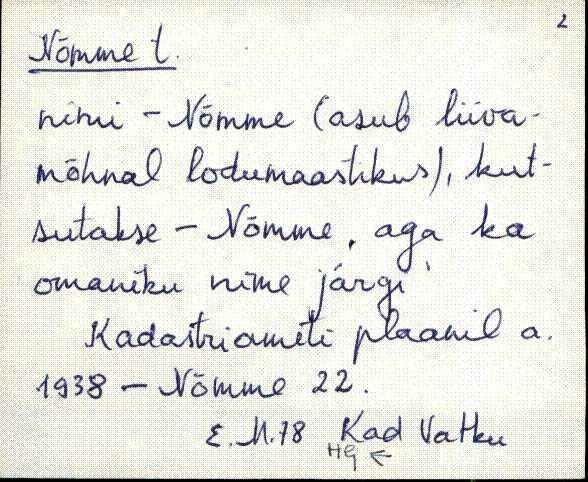 2
Nõmme t.
nimi - Nõmme (asub liiva-
mõhnal lodumaastikus), kut-
sutakse - Nõmme, aga ka
omaniku nime järgi
Kadastriameti plaanil a.
1938 - Nõmme 22.
E.M.78 Kad Vatku
HG ←